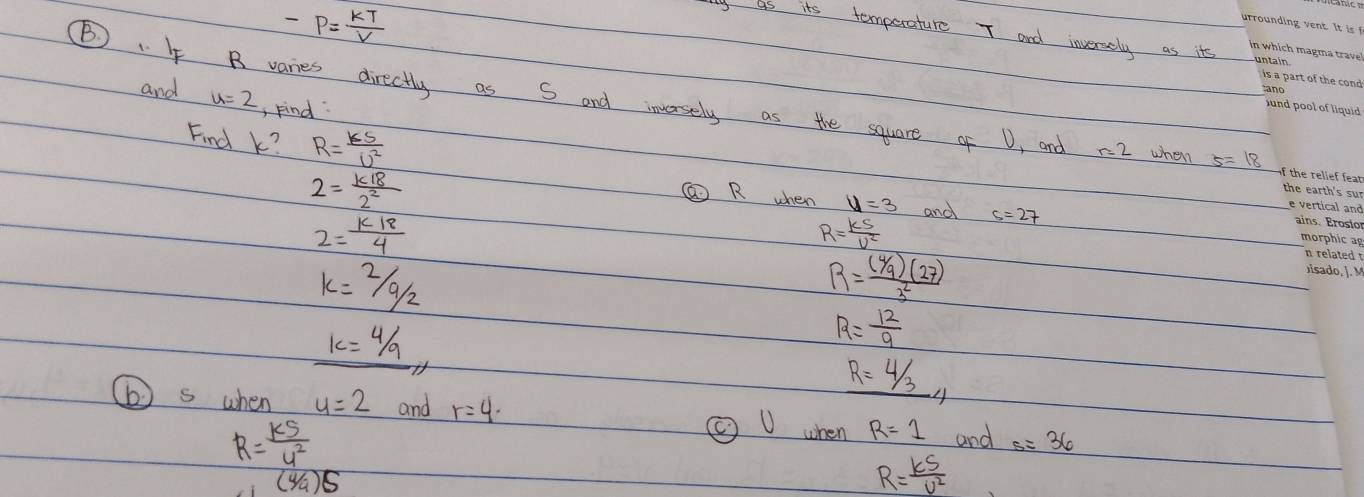 as its temperature T and inversely as its
- P = KT/V
B. 1. If R varies directly as S and inversely as the square of U, and r=2 when s=18
and u=2, Find:
Find k? R = KS/U²
2 = K18/2²
2 = K18/4
K = 2/9/2
K = 4/9
a. R when u=3 and s=27
R = KS/U²
R = (4/9)(27)/3²
R = 12/9
R = 4/3
b. s when u=2 and r=4.
R = KS/u²
(4/9)S
c. U when R=1 and s=36
R = KS/U²
urrounding vent. It is f
in which magma travel
untain.
is a part of the cond
cano
ound pool of liquid
f the relief feat
the earth's sur
e vertical and
ains. Erosion
morphic ag
n related t
isado, J. M